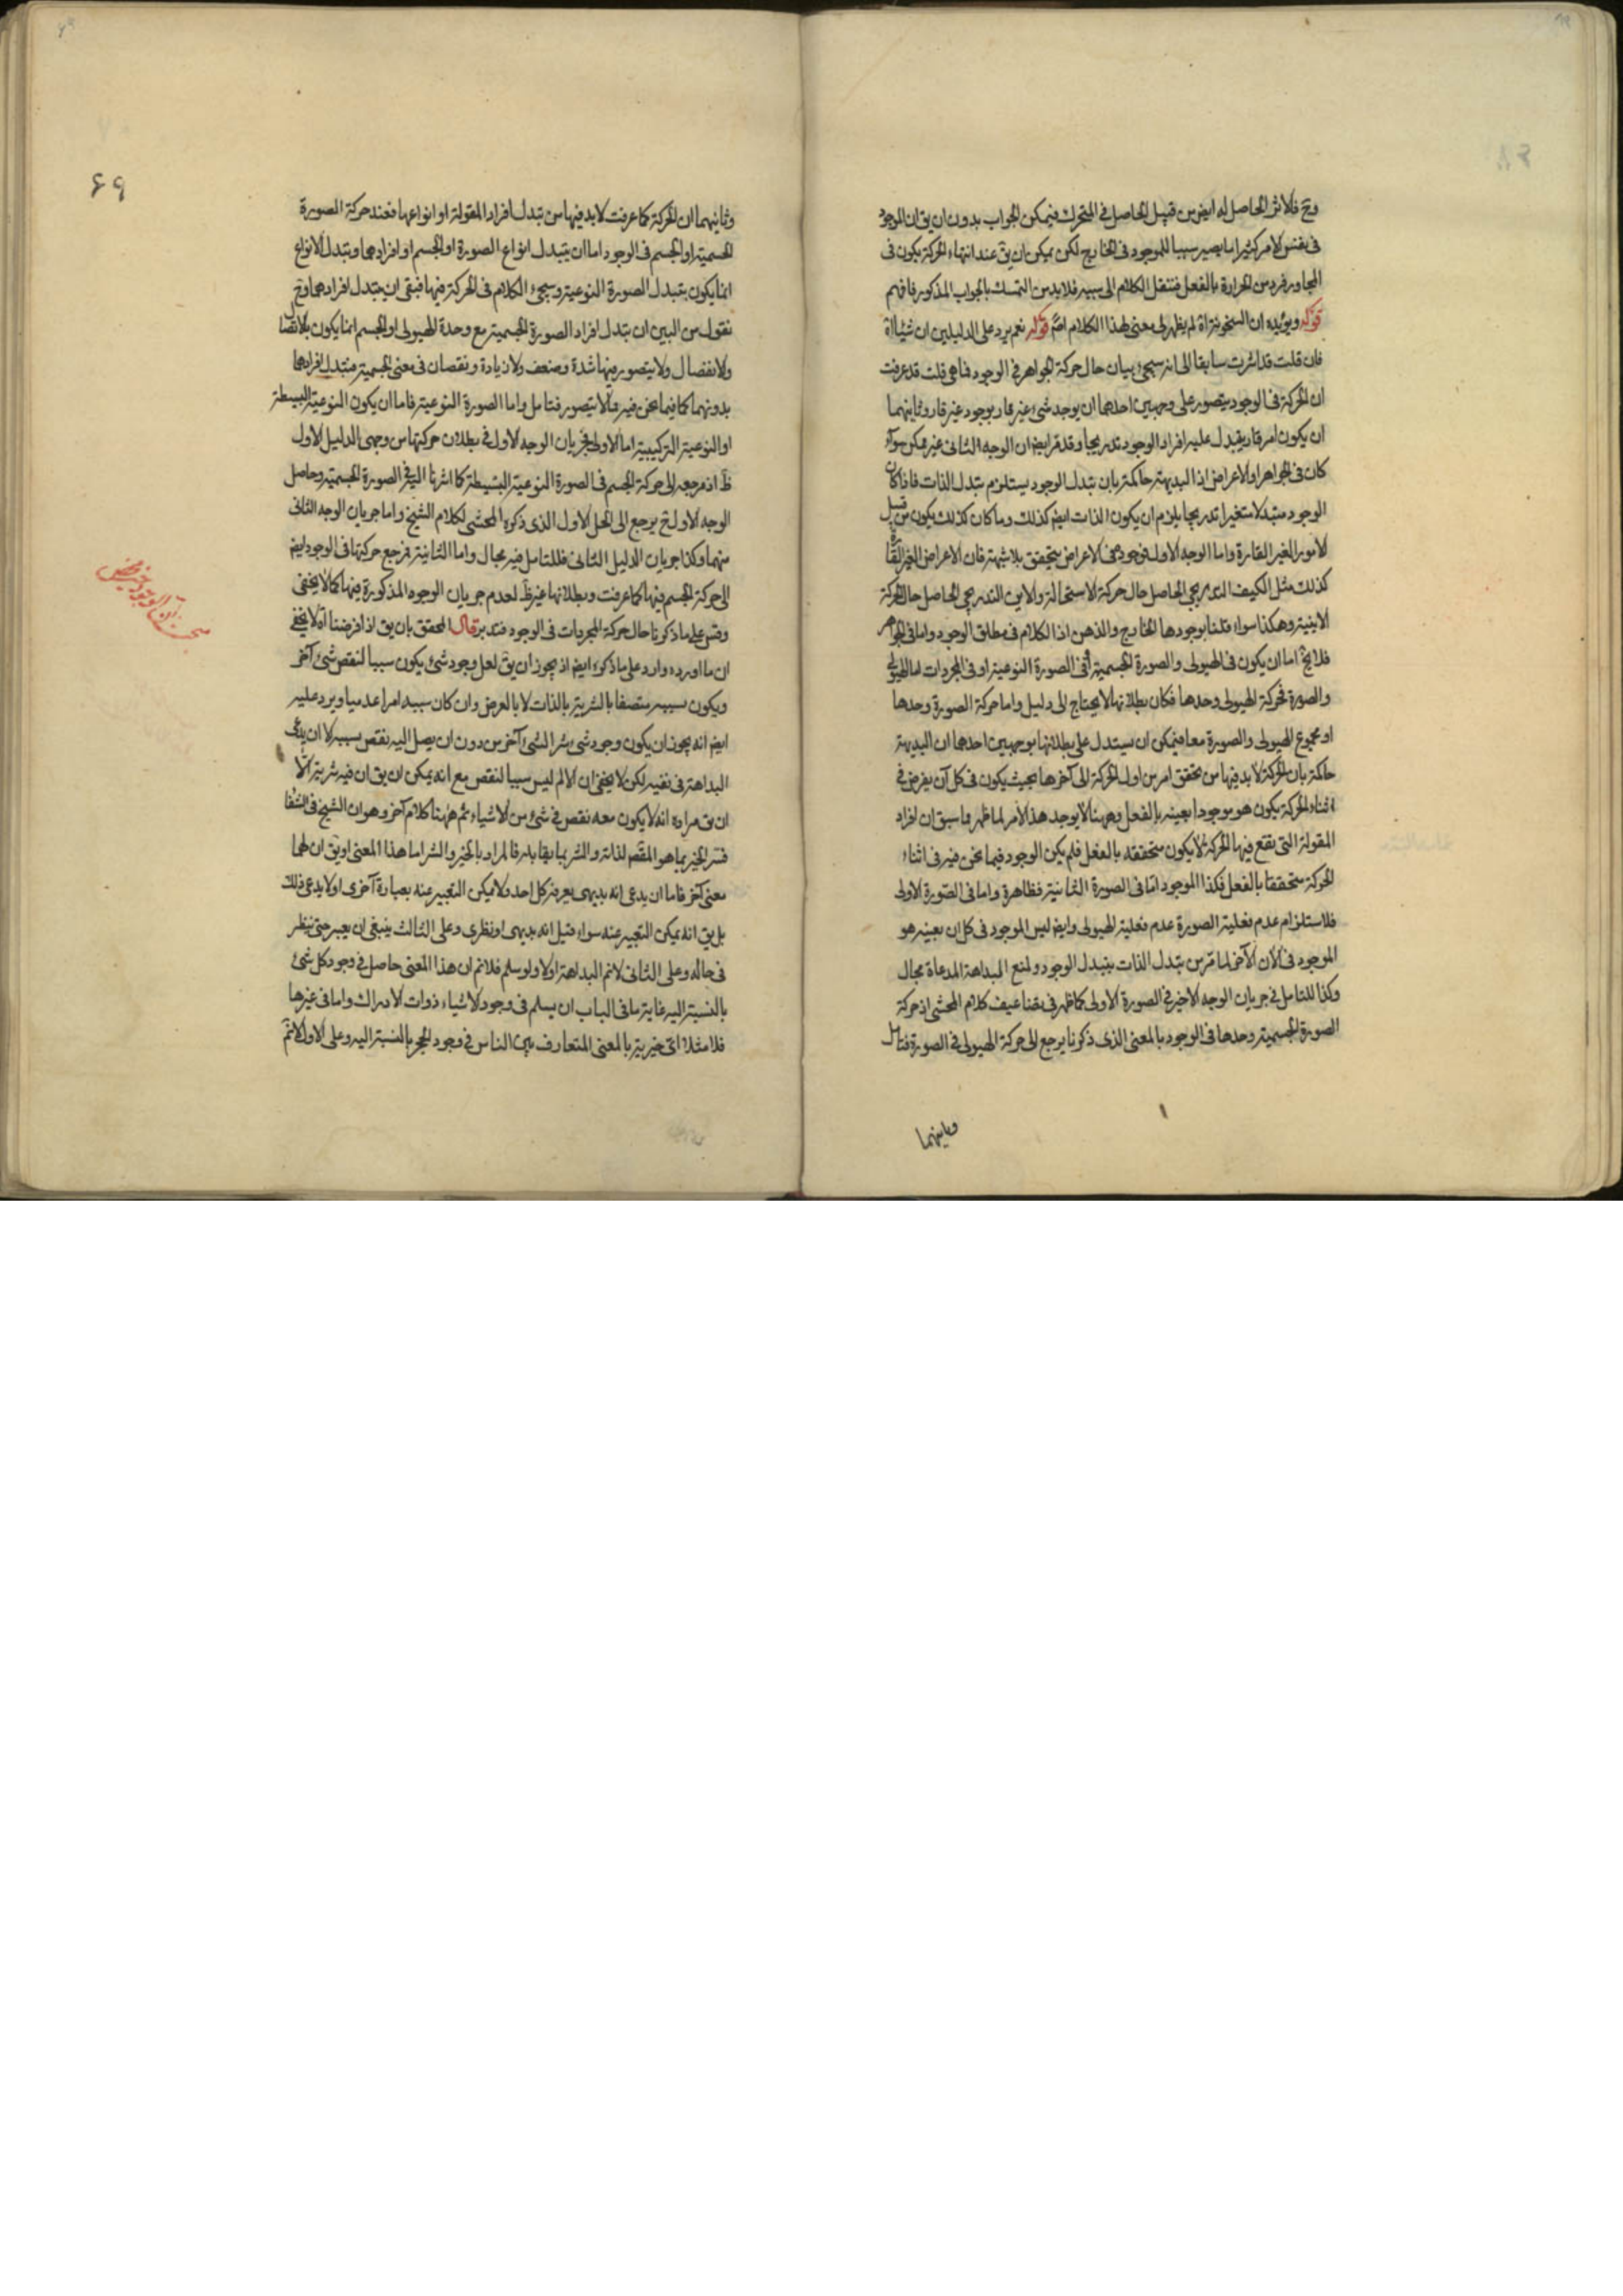 وح فلاثر الحاصل له ايض من قبيل الحاصل في المتحرك فيمكن الجواب بدون ان يق ان الموجود
في نفس الامر كثيرا ما يصير سببا للموجود في الخارج لكن يمكن ان يق عند انتهاء الحركة يكون في
المجاور فرد من الحرارة بالفعل فننقل الكلام الى سببه فلابد من التمسك بالجواب المذكور فافهم
قوله ويؤيده ان السخونة اه لم يظهر لى معنى لهذا الكلام قوله نعم يرد على الدليلين ان شيئا اه
فان قلت قد اشرت سابقا الى انه سيجئ بيان حال حركة الجواهر في الوجود فما هى قلت قد عرفت
ان الحركة في الوجود يتصور على وجهين احدهما ان يوجد شئ غير قار بوجود غير قار وثانيهما
ان يكون امر قار يتبدل عليه افراد الوجود تدريجا وقد مر ايض ان الوجه الثانى غير ممكن سواء
كان في الجواهر او الاعراض اذ البديهة حاكمة بان تبدل الوجود يستلزم تبدل الذات فاذا كان
الوجود متبدلا متغيرا تدريجا يلزم ان يكون الذات ايض كذلك وما كان كذلك يكون من قبيل
الامور الغير القارة واما الوجه الاول فوجوده في الاعراض يتحقق بلا شبهة فان الاعراض الغير القارة
كذلك مثل الكيف التدريجى الحاصل حال حركة الاستحالة والاين التدريجى الحاصل حال الحركة
الاينية وهكذا سواء قلنا بوجودها الخارج والذهن اذ الكلام في مطلق الوجود واما في الجواهر
فلايخ اما ان يكون في الهيولى والصورة الجسمية او في الصورة النوعية او في المجردات اما الهيولى
والصورة فحركة الهيولى وحدها فكان بطلانها لا يحتاج الى دليل واما حركة الصورة وحدها
او مجموع الهيولى والصورة معا فيمكن ان يستدل على بطلانها بوجهين احدهما ان البديهة
حاكمة بان الحركة لابد فيها من تحقق امر من اول الحركة الى آخرها بحيث يكون في كل آن يفرض في
اثناء الحركة يكون هو موجودا بعينه بالفعل وههنا لا يوجد هذا الامر لما ظهر مما سبق ان افراد
المقولة التى تقع فيها الحركة لا يكون متحققه بالفعل فلم يكن الوجود فيما نحن فيه في اثناء
الحركة متحققا بالفعل فكذا الموجود اما في الصورة الثانية فظاهرة واما في الصورة الاولى
فلاستلزام عدم فعلية الصورة عدم فعلية الهيولى وايض ليس الموجود في كل ان بعينه هو
الموجود في الآن الآخر لما مر من تبدل الذات بتبدل الوجود ولمنع البداهة المدعاة مجال
وكذا للتامل في جريان الوجه الاخير في الصورة الاولى كما ظهر في تضاعيف كلام المحشى اذ حركة
الصورة الجسمية وحدها في الوجود بالمعنى الذى ذكرنا يرجع الى حركة الهيولى في الصورة فتامل
وثانيهما
۶۹
وثانيهما ان الحركة كما عرفت لابد فيها من تبدل افراد المقولة او انواعها فعند حركة الصورة
الجسمية او الجسم في الوجود اما ان يتبدل انواع الصورة او الجسم او افرادهما وتبدل الانواع
انما يكون بتبدل الصورة النوعية وسيجئ الكلام في الحركة فيها فبقى ان يتبدل افرادهما وح
نقول من البين ان تبدل افراد الصورة الجسمية مع وحدة الهيولى او الجسم انما يكون بالاتصال
والانفصال ولا يتصور فيها شدة وضعف ولا زيادة ونقصان في معنى الجسمية فتبدل افرادهما
بدونهما كما فيما نحن فيه مما لا يتصور فتامل واما الصورة النوعية فاما ان يكون النوعية البسيطة
او النوعية التركيبية اما الاولى فجريان الوجه الاول في بطلان حركتها من وجهى الدليل الاول
ظ اذ مرجعه الى حركة الجسم في الصورة النوعية البسيطة كما اشرنا اليه في الصورة الجسمية وحاصل
الوجه الاول ح يرجع الى الحل الاول الذى ذكره المحشى لكلام الشيخ واما جريان الوجه الثانى
منهما وكذا جريان الدليل الثانى فللتامل فيه مجال واما الثانية فمرجع حركتها في الوجود ايض
الى حركة الجسم فيها كما عرفت وبطلانها غير ظ لعدم جريان الوجوه المذكورة فيها كما لا يخفى
وقس على ما ذكرنا حال حركة المجردات في الوجود فتدبر قال المحقق بان يق اذا فرضنا اه لا يخفى
ان ما اورده وارد على ما ذكره ايض اذ يجوز ان يق لعل وجود شئ يكون سببا لنقص شئ آخر
ويكون سببه متصفا بالشرية بالذات لا بالعرض وان كان سببه امرا عدميا ويرد عليه
ايض انه يجوز ان يكون وجود شئ شرا لشئ آخر من دون ان يصل اليه نقص بسببه الا ان يدعى
البداهة في نفيه لكن لا يخفى ان الالم ليس سببا لنقص مع انه يمكن ان يق ان فيه شرية الا
ان يق مراده انه لا يكون معه نقص في شئ من الاشياء ثم ههنا كلام آخر وهو ان الشيخ في الشفا
فسر الخير بما هو المقصد لذاته والشر بما يقابله فالمراد بالخير والشر اما هذا المعنى او يق ان لهما
معنى آخر فاما ان يدعى انه بديهى يعرفه كل احد ولا يمكن التعبير عنه بعبارة اخرى او لا يدعى ذلك
بل يق انه يمكن التعبير عنه سواء قيل انه بديهى او نظرى وعلى الثالث ينبغى ان يعبر حتى ينظر
في حاله وعلى الثانى لانم البداهة اولا ولو سلم فلانم ان هذا المعنى حاصل في وجود كل شئ
بالنسبة اليه غاية ما في الباب ان يسلم في وجود الاشياء ذوات الادراك واما في غيرها
فلا مثلا اى خيرية بالمعنى المتعارف بين الناس في وجود الحجر بالنسبة اليه وعلى الاول لانم